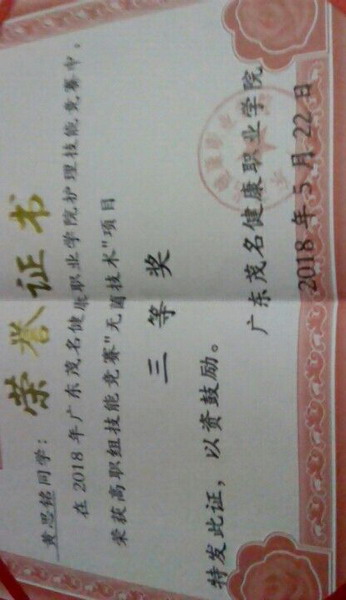 荣誉证书
黄思铭同学：
在2018年广东茂名健康职业学院护理技能竞赛中，
荣获高职组技能竞赛"无菌技术"项目
三等奖
特发此证，以资鼓励。
广东茂名健康职业学院
2018年5月22日